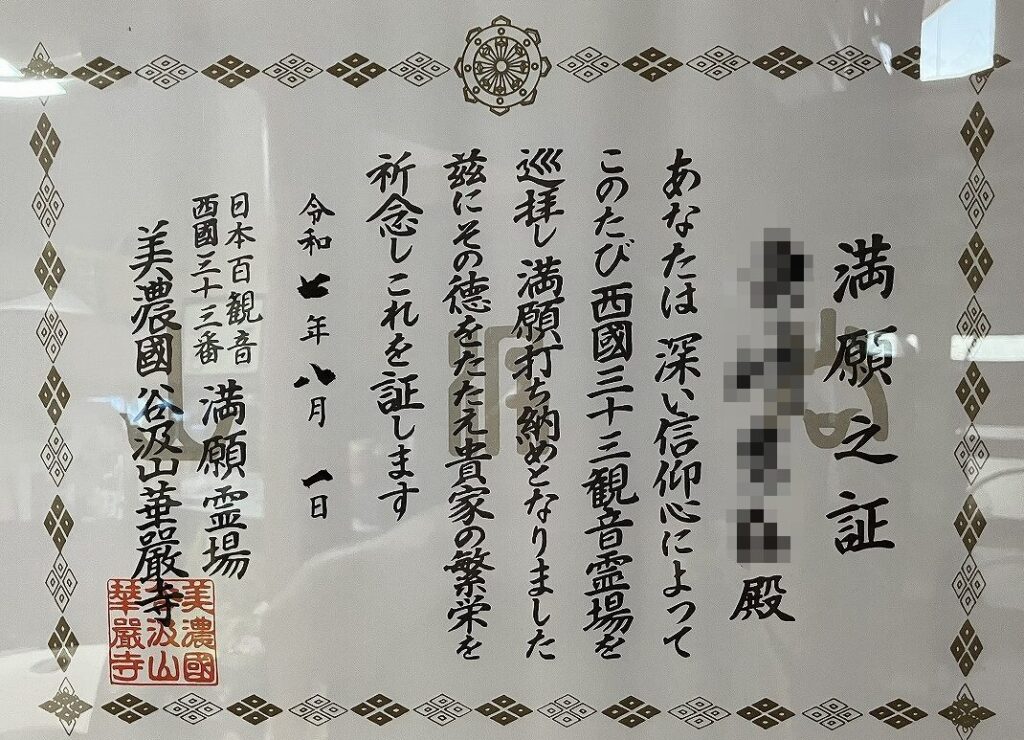 満願之証
殿
あなたは 深い信仰心によって
このたび西國三十三観音霊場を
巡拝し 満願打ち納めとなりました
茲にその徳をたたえ貴家の繁栄を
祈念しこれを証します
令和 七年 八月 一日
日本百観音
西國三十三番
満願霊場
美濃國 谷汲山華嚴寺
美濃國
汲山
華嚴寺